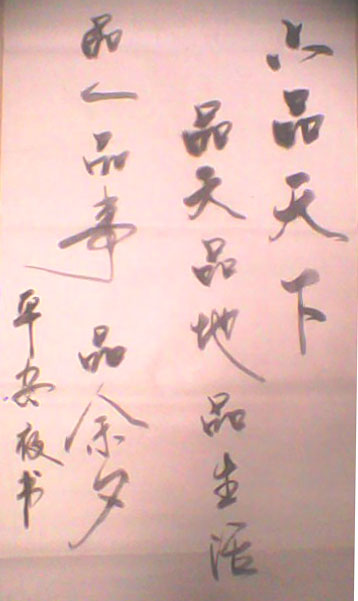 品天下
品天品地品生活
品人品事 品余夕
平安夜书